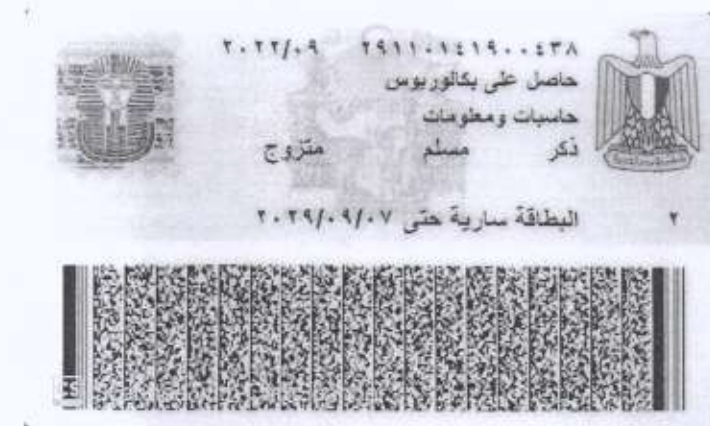 ٢٩١١٠١٤١٩٠٠٤٣٨ ٢٠٢٢/٠٩
حاصل على بكالوريوس
حاسبات ومعلومات
ذكر مسلم متزوج
٢ البطاقة سارية حتى ٢٠٢٩/٠٩/٠٧